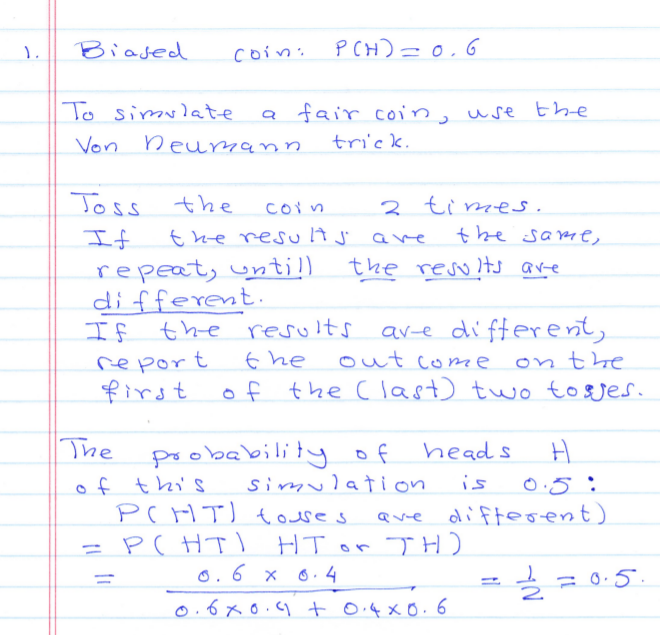 1. Biased coin: P(H) = 0.6
To simulate a fair coin, use the
Von Neumann trick.
Toss the coin 2 times.
If the results are the same,
repeat, untill the results are
different.
If the results are different,
report the outcome on the
first of the (last) two tosses.
The probability of heads H
of this simulation is 0.5 :
P(HT| tosses are different)
= P(HT| HT or TH)
= 0.6 x 0.4 / 0.6 x 0.4 + 0.4 x 0.6 = 1/2 = 0.5.